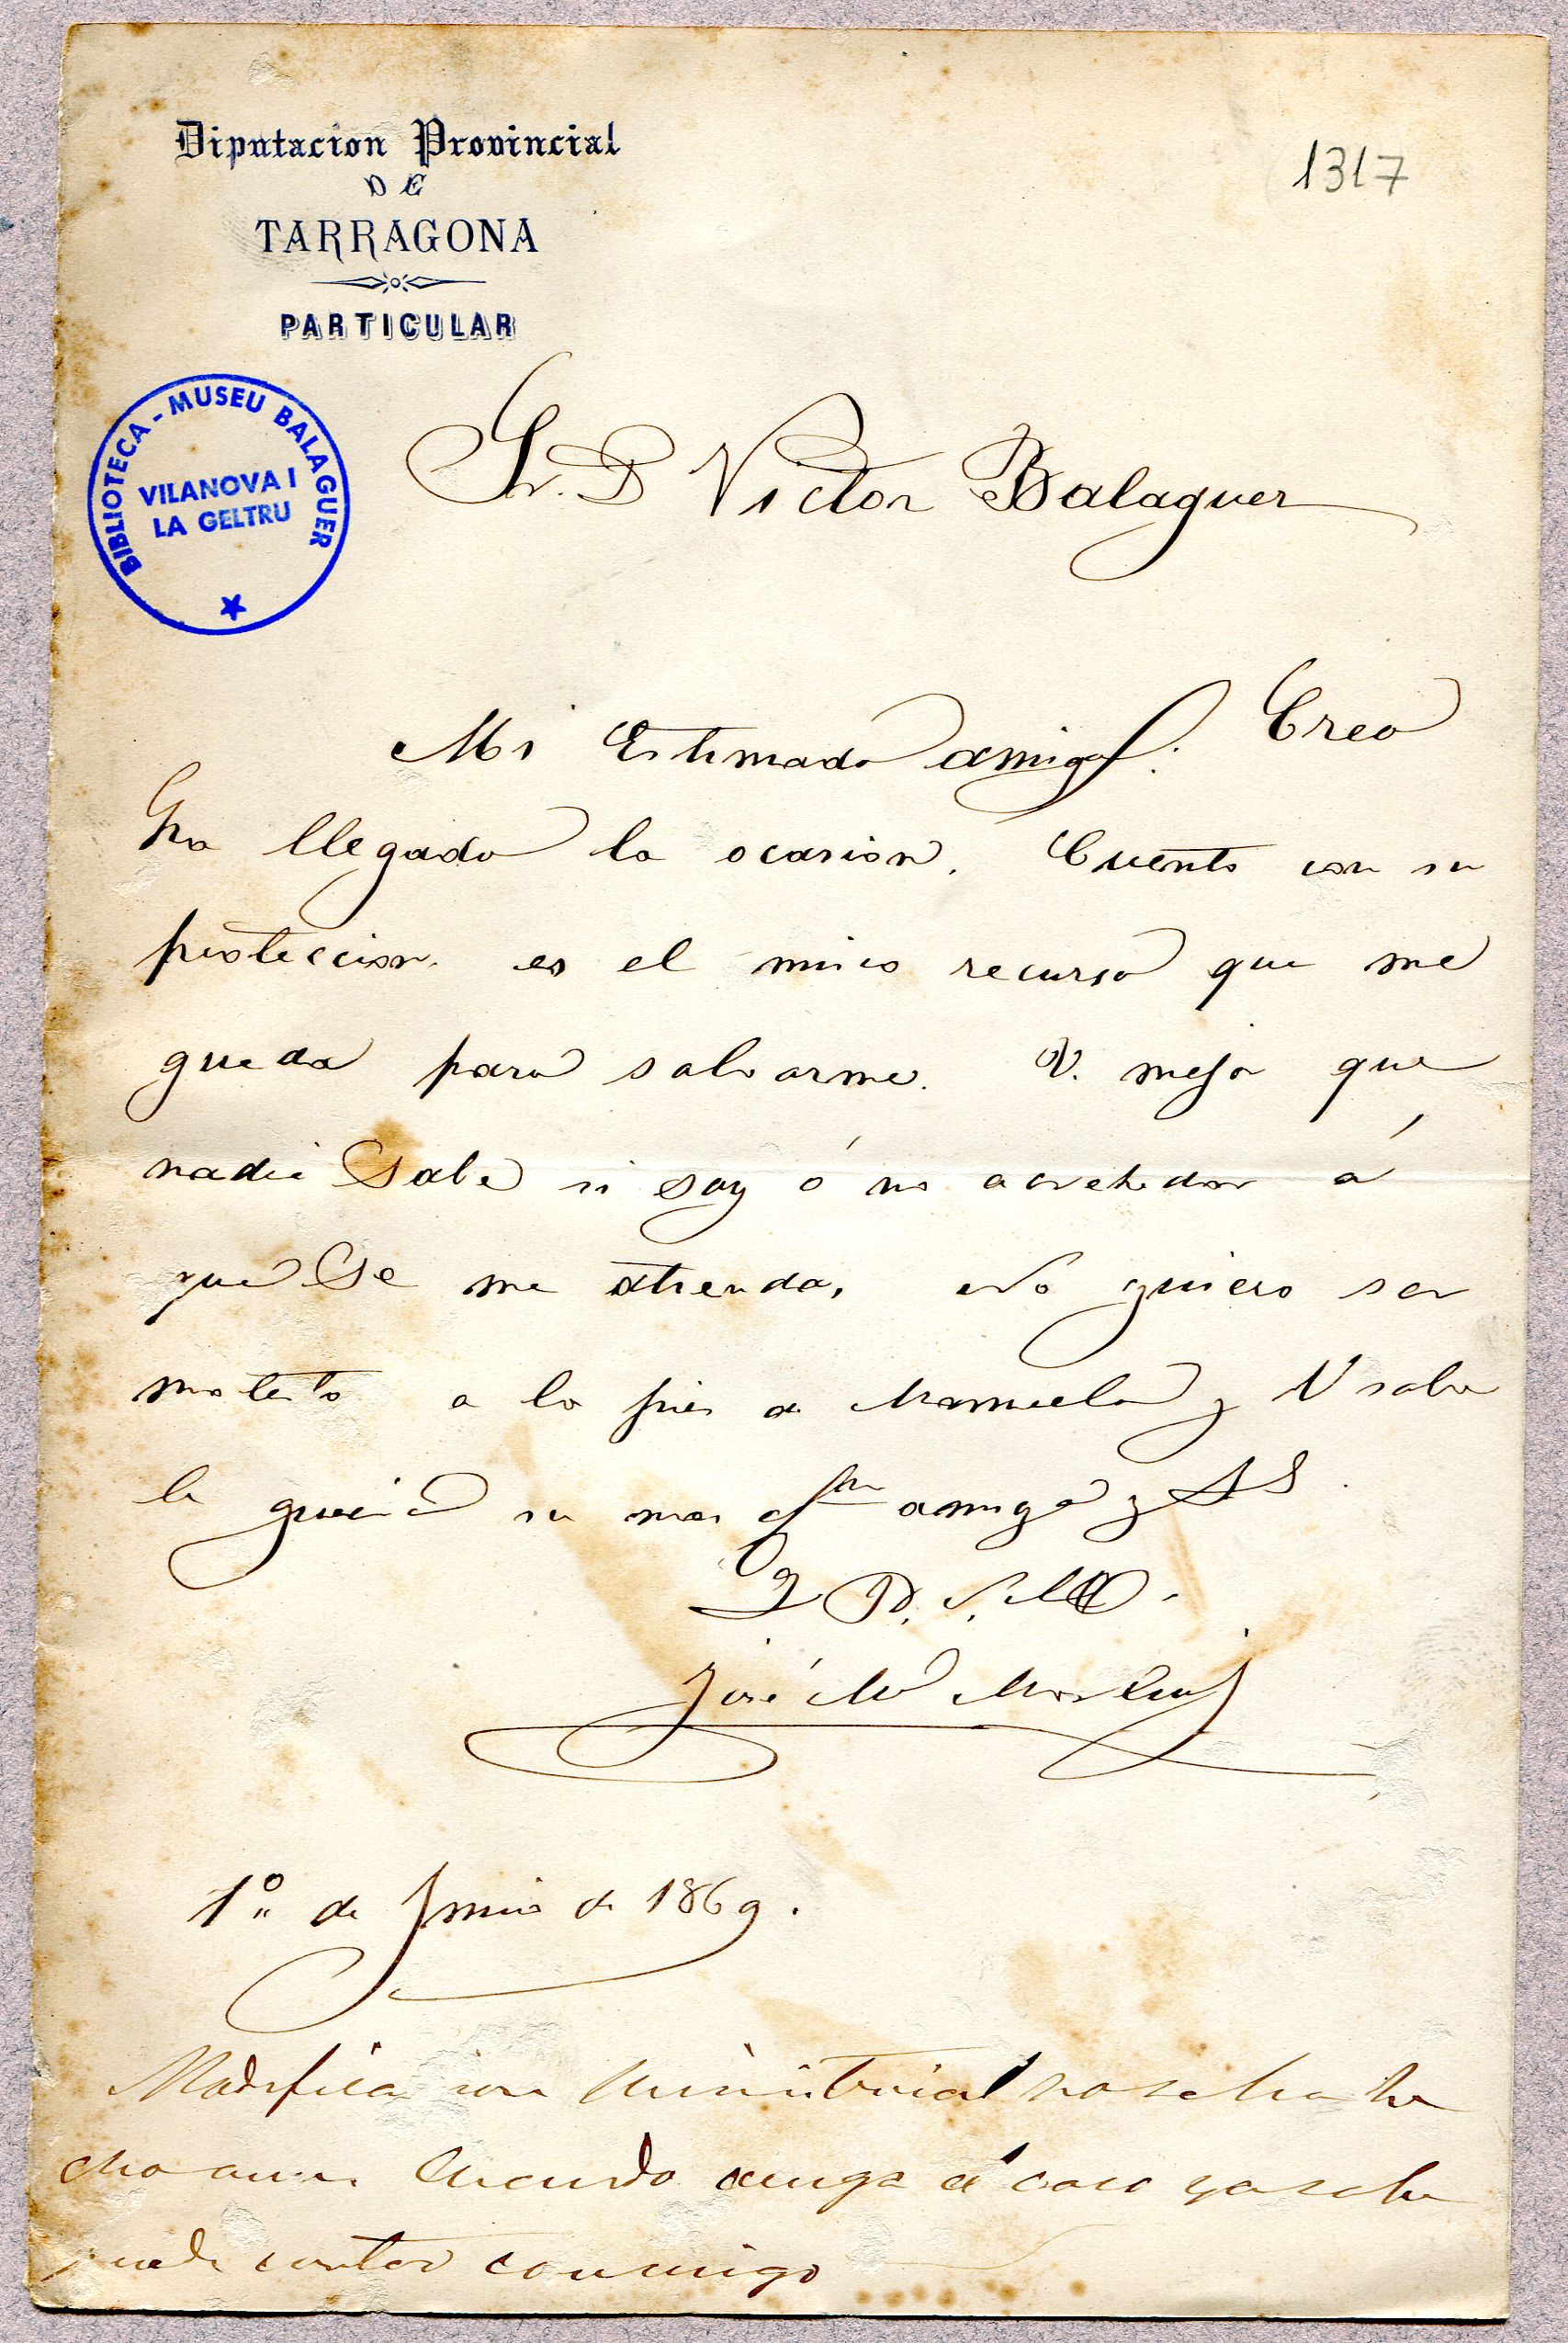 Diputacion Provincial
DE
TARRAGONA
PARTICULAR
1317
BIBLIOTECA - MUSEU BALAGUER
VILANOVA I
LA GELTRU
Sr. D Victor Balaguer
Mi Estimado amigo: Creo
ha llegado la ocasion. Cuento con su
proteccion. es el unico recurso que me
queda para salvarme. V. mejor que
nadie sabe si soy ó no acrehedor á
que se me atienda. No quiero ser
molesto a los pies de Manuela y V sabe
le quiere su mas afmo amigo y SS.
Q B. S. M.
José Mª
1º de Junio de 1869.
Modificacion Ministerial no se ha he
cho aun. Cuando venga el caso ya sabe
puede contar conmigo